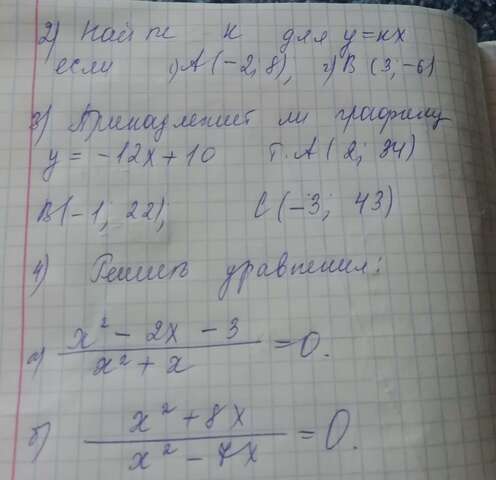 2) Найти к для y=кx
если 1) A(-2; 8); 2) B (3; -6)
3) Принадлежит ли графику
y = -12x + 10 т. A (2; 34)
B(-1; 22); C(-3; 43)
4) Решить уравнения:
а) (x² - 2x - 3)/(x² + x) = 0.
б) (x² + 8x)/(x² - 7x) = 0.